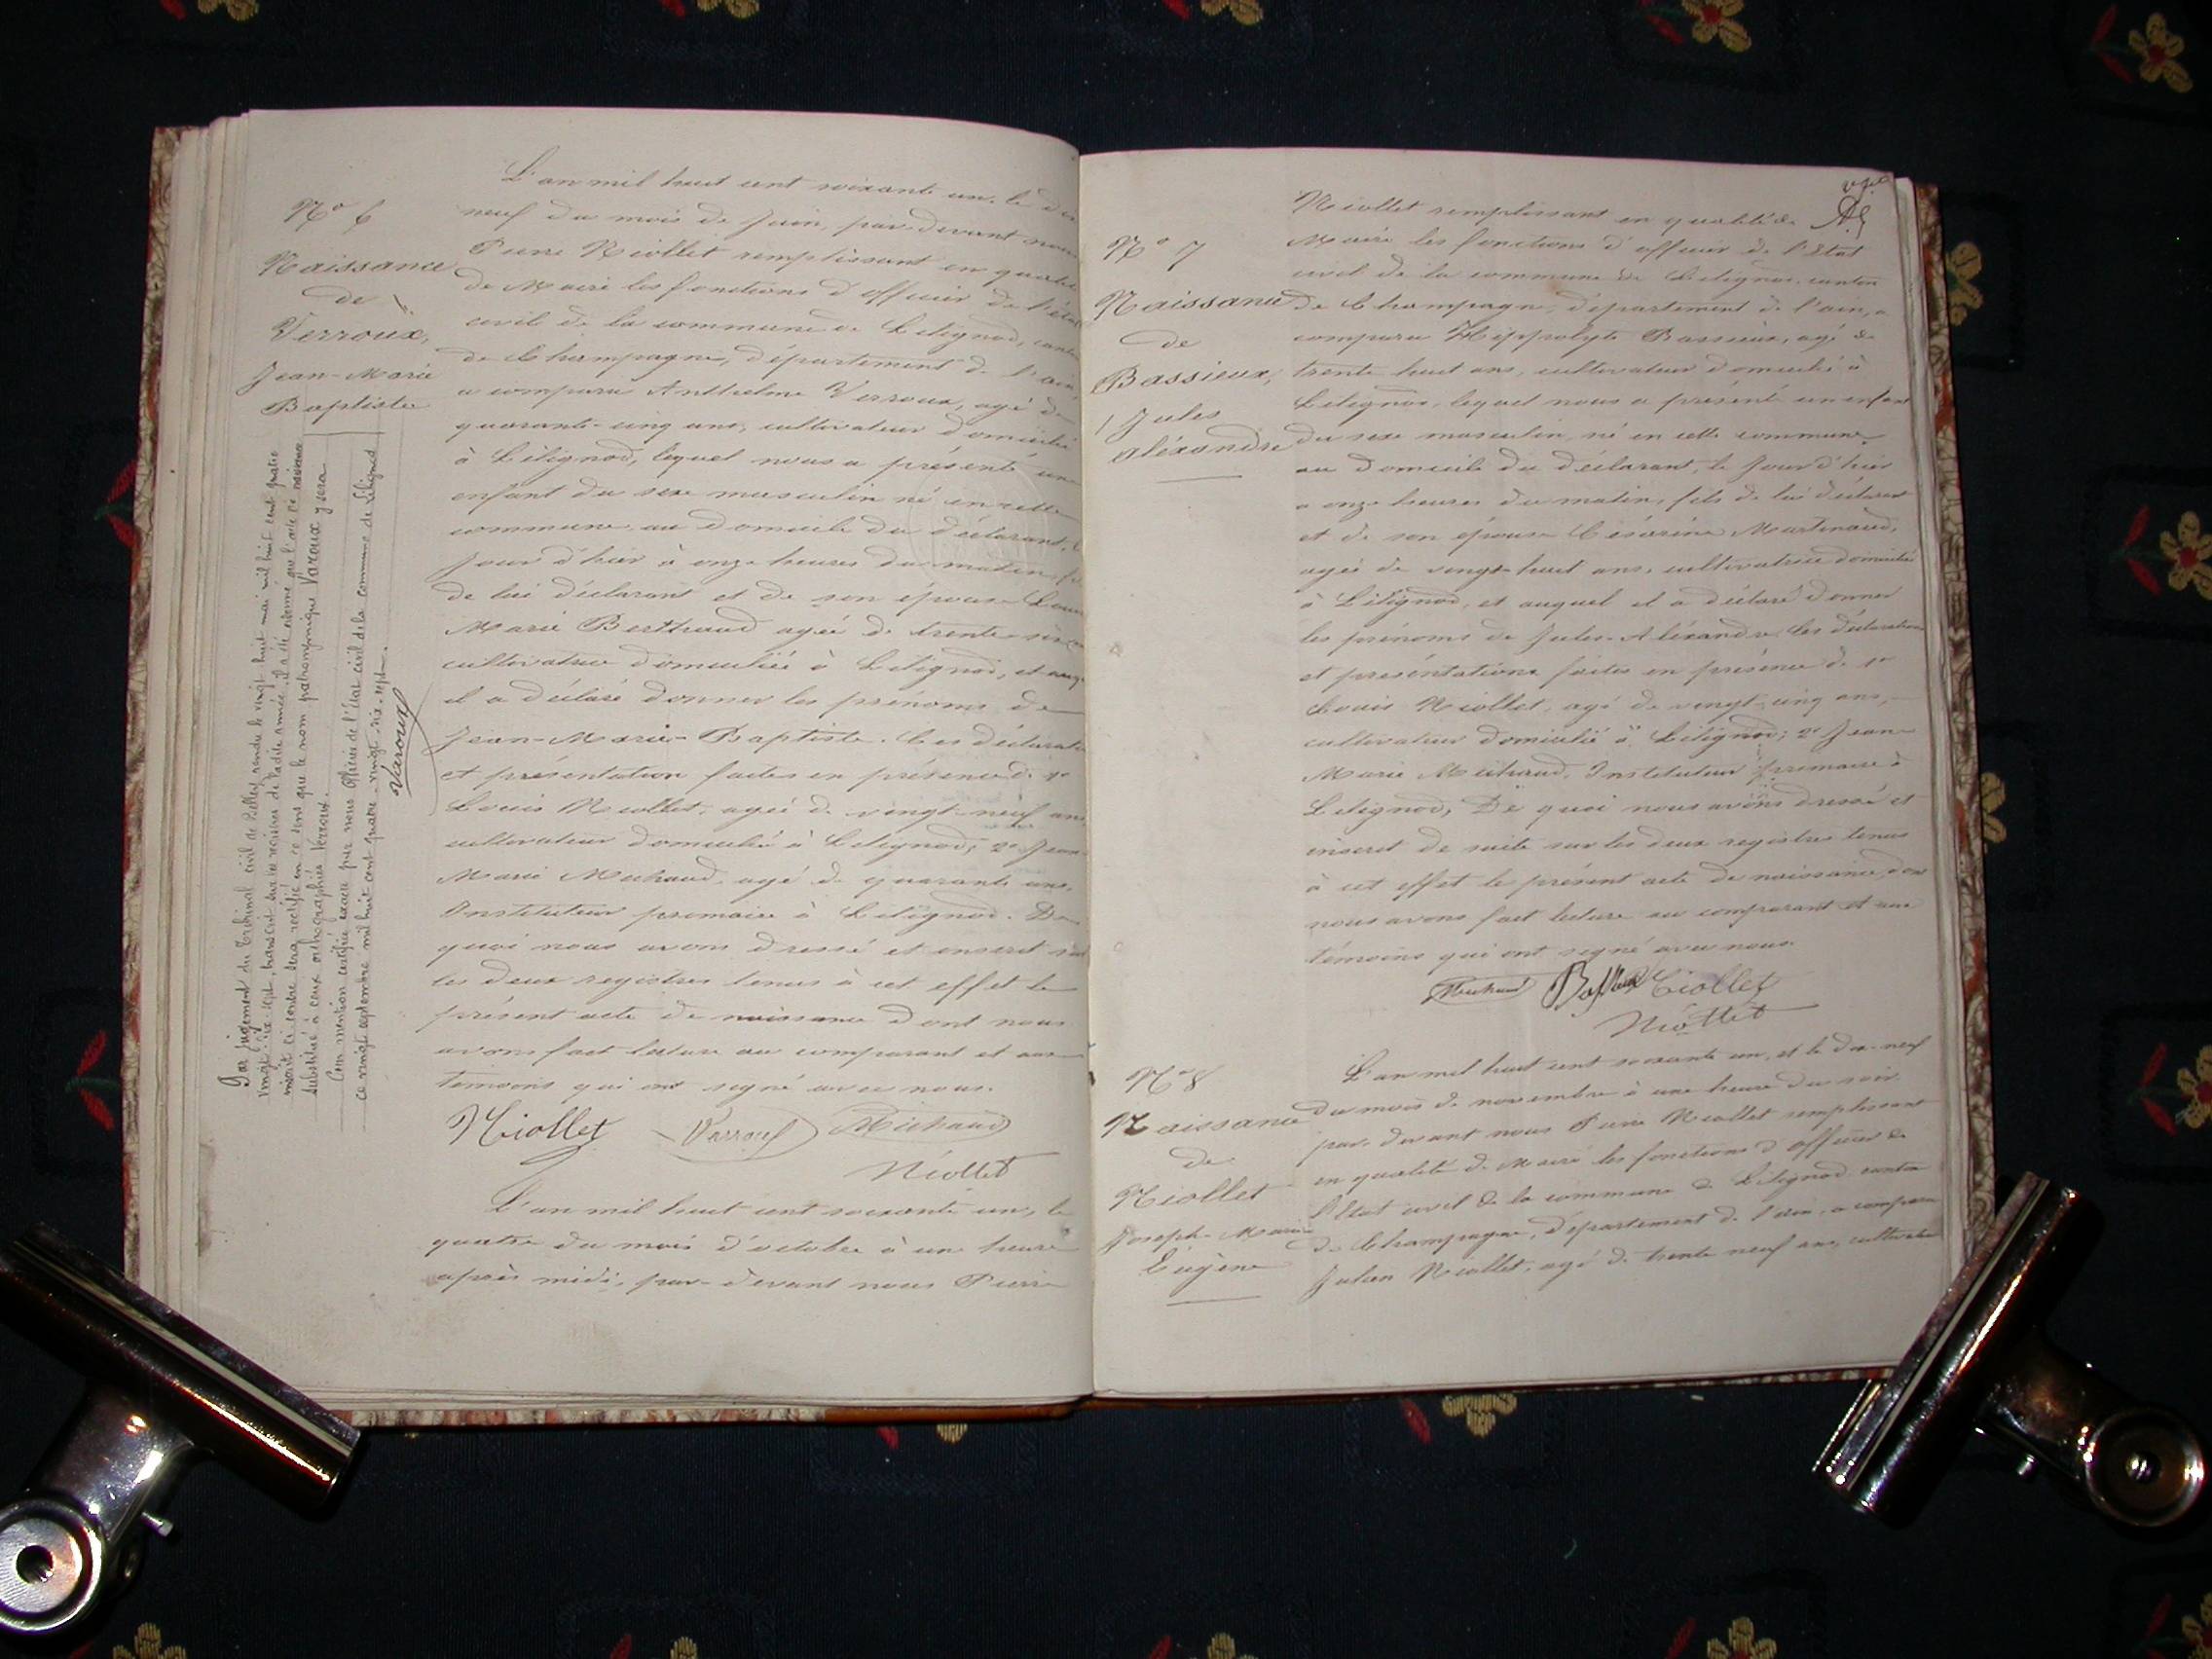 N° 6
Naissance
de
Verroux,
Jean-Marie
Baptiste
Par jugement du Tribunal civil de Belley rendu le vingt huit mai mil huit cent quatre
vingt-dix-sept, transcrit sur les registres de ladite année, il a été ordonné que l'acte de naissance
inscrit ci-contre sera rectifié en ce sens que le nom patronymique Varoux y sera
substitué à ceux orthographiés Verroux.
Cette mention certifiée exacte par nous Officier de l'état civil de la commune de Lilignod
ce vingt septembre mil huit cent quatre-vingt-dix-sept.
Varoux
L'an mil huit cent soixante un, le
neuf du mois de Juin, par-devant nous
Pierre Niollet remplissant en qualité
de Maire les fonctions d'officier de l'état
civil de la commune de Lilignod, canton
de Champagne, département de l'ain,
a comparu Anthelme Verroux, agé de
quarante-cinq ans, cultivateur domicilié
à Lilignod, lequel nous a présenté un
enfant du sexe masculin né en cette
commune au domicile du déclarant,
Jour d'hier à onze heures du matin,
de lui déclarant et de son épouse
Marie Berthaud agée de trente-six
cultivatrice domiciliée à Lilignod, et
il a déclaré donner les prénoms de
Jean-Marie-Baptiste. Les
et présentation faites en présence de 1°
Louis Niollet, agé de vingt-neuf ans
cultivateur domicilié à Lilignod; 2° Jean
Marie Michaud, agé de quarante ans,
Instituteur primaire à Lilignod. De
quoi nous avons dressé et inscrit sur
les deux registres tenus à cet effet le
présent acte de naissance dont nous
avons fait lecture au comparant et aux
témoins qui ont signé avec nous.
Niollet Varroux Michaud
Niollet
L'an mil huit cent soixante un, le
quatre du mois d'octobre à une heure
après midi, par-devant nous Pierre
N° 7
Naissance
de
Bassieux,
Jules
Aléxandre
Niollet remplissant en qualité de
Maire les fonctions d'officier de l'état
civil de la commune de Lilignod, canton
de Champagne, département de l'ain, a
comparu Hippolyte Bassieux, agé de
trente huit ans, cultivateur domicilié à
Lilignod, lequel nous a présenté un enfant
du sexe masculin, né en cette commune
au domicile du déclarant, le Jour d'hier
a onze heures du matin, fils de lui déclarant
et de son épouse Césarine Martinaud,
agée de vingt-huit ans, cultivatrice domiciliée
à Lilignod, et auquel il a déclaré donner
les prénoms de Jules-Aléxandre, les déclaration
et présentations faites en présence de 1°
Louis Niollet, agé de vingt-cinq ans,
cultivateur domicilié à Lilignod; 2° Jean-
Marie Michaud, Instituteur primaire à
Lilignod, De quoi nous avons dressé et
inscrit de suite sur les deux registres tenus
à cet effet le présent acte de naissance, dont
nous avons fait lecture au comparant et aux
témoins qui ont signé avec nous.
Michaud Bassieux Niollet
Niollet
N° 8
Naissance
de
Niollet
Joseph-Marie
Eugène
L'an mil huit cent soixante un, et le dix-neuf
du mois de novembre à une heure du soir
par-devant nous Pierre Niollet remplissant
en qualité de Maire les fonctions d'officier de
l'Etat civil de la commune de Lilignod canton
de Champagne, département de l'ain, a comparu
Julien Niollet, agé de trente neuf ans, cultivateur